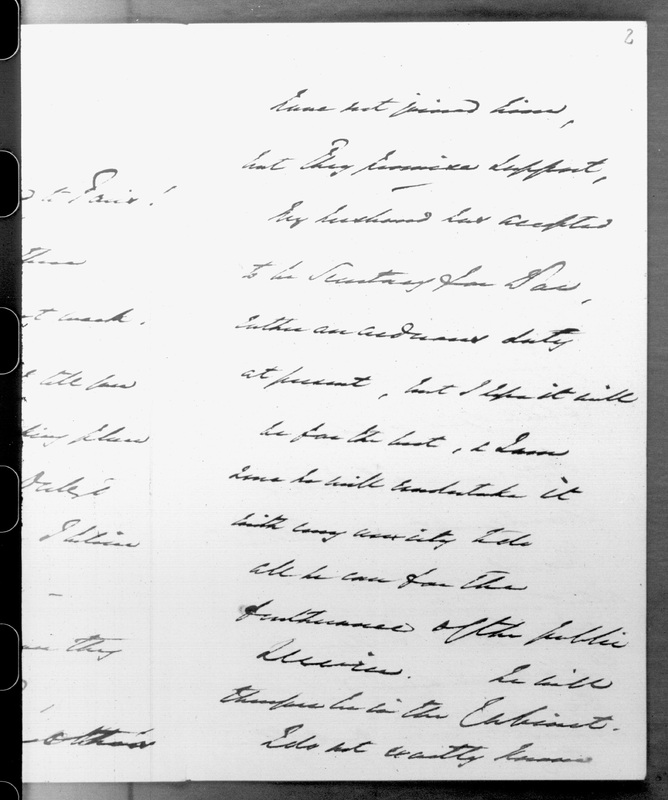 2
to Paris!
week.
I believe
they
have not joined him,
but they promise support,
My husband has accepted
to be Secretary for War,
rather an arduous duty
at present, but I hope it will
be for the best, & I am
sure he will undertake it
with every anxiety to do
all he can for the
furtherance of the public
Service. he will
therefore be in the Cabinet.
I do not exactly know